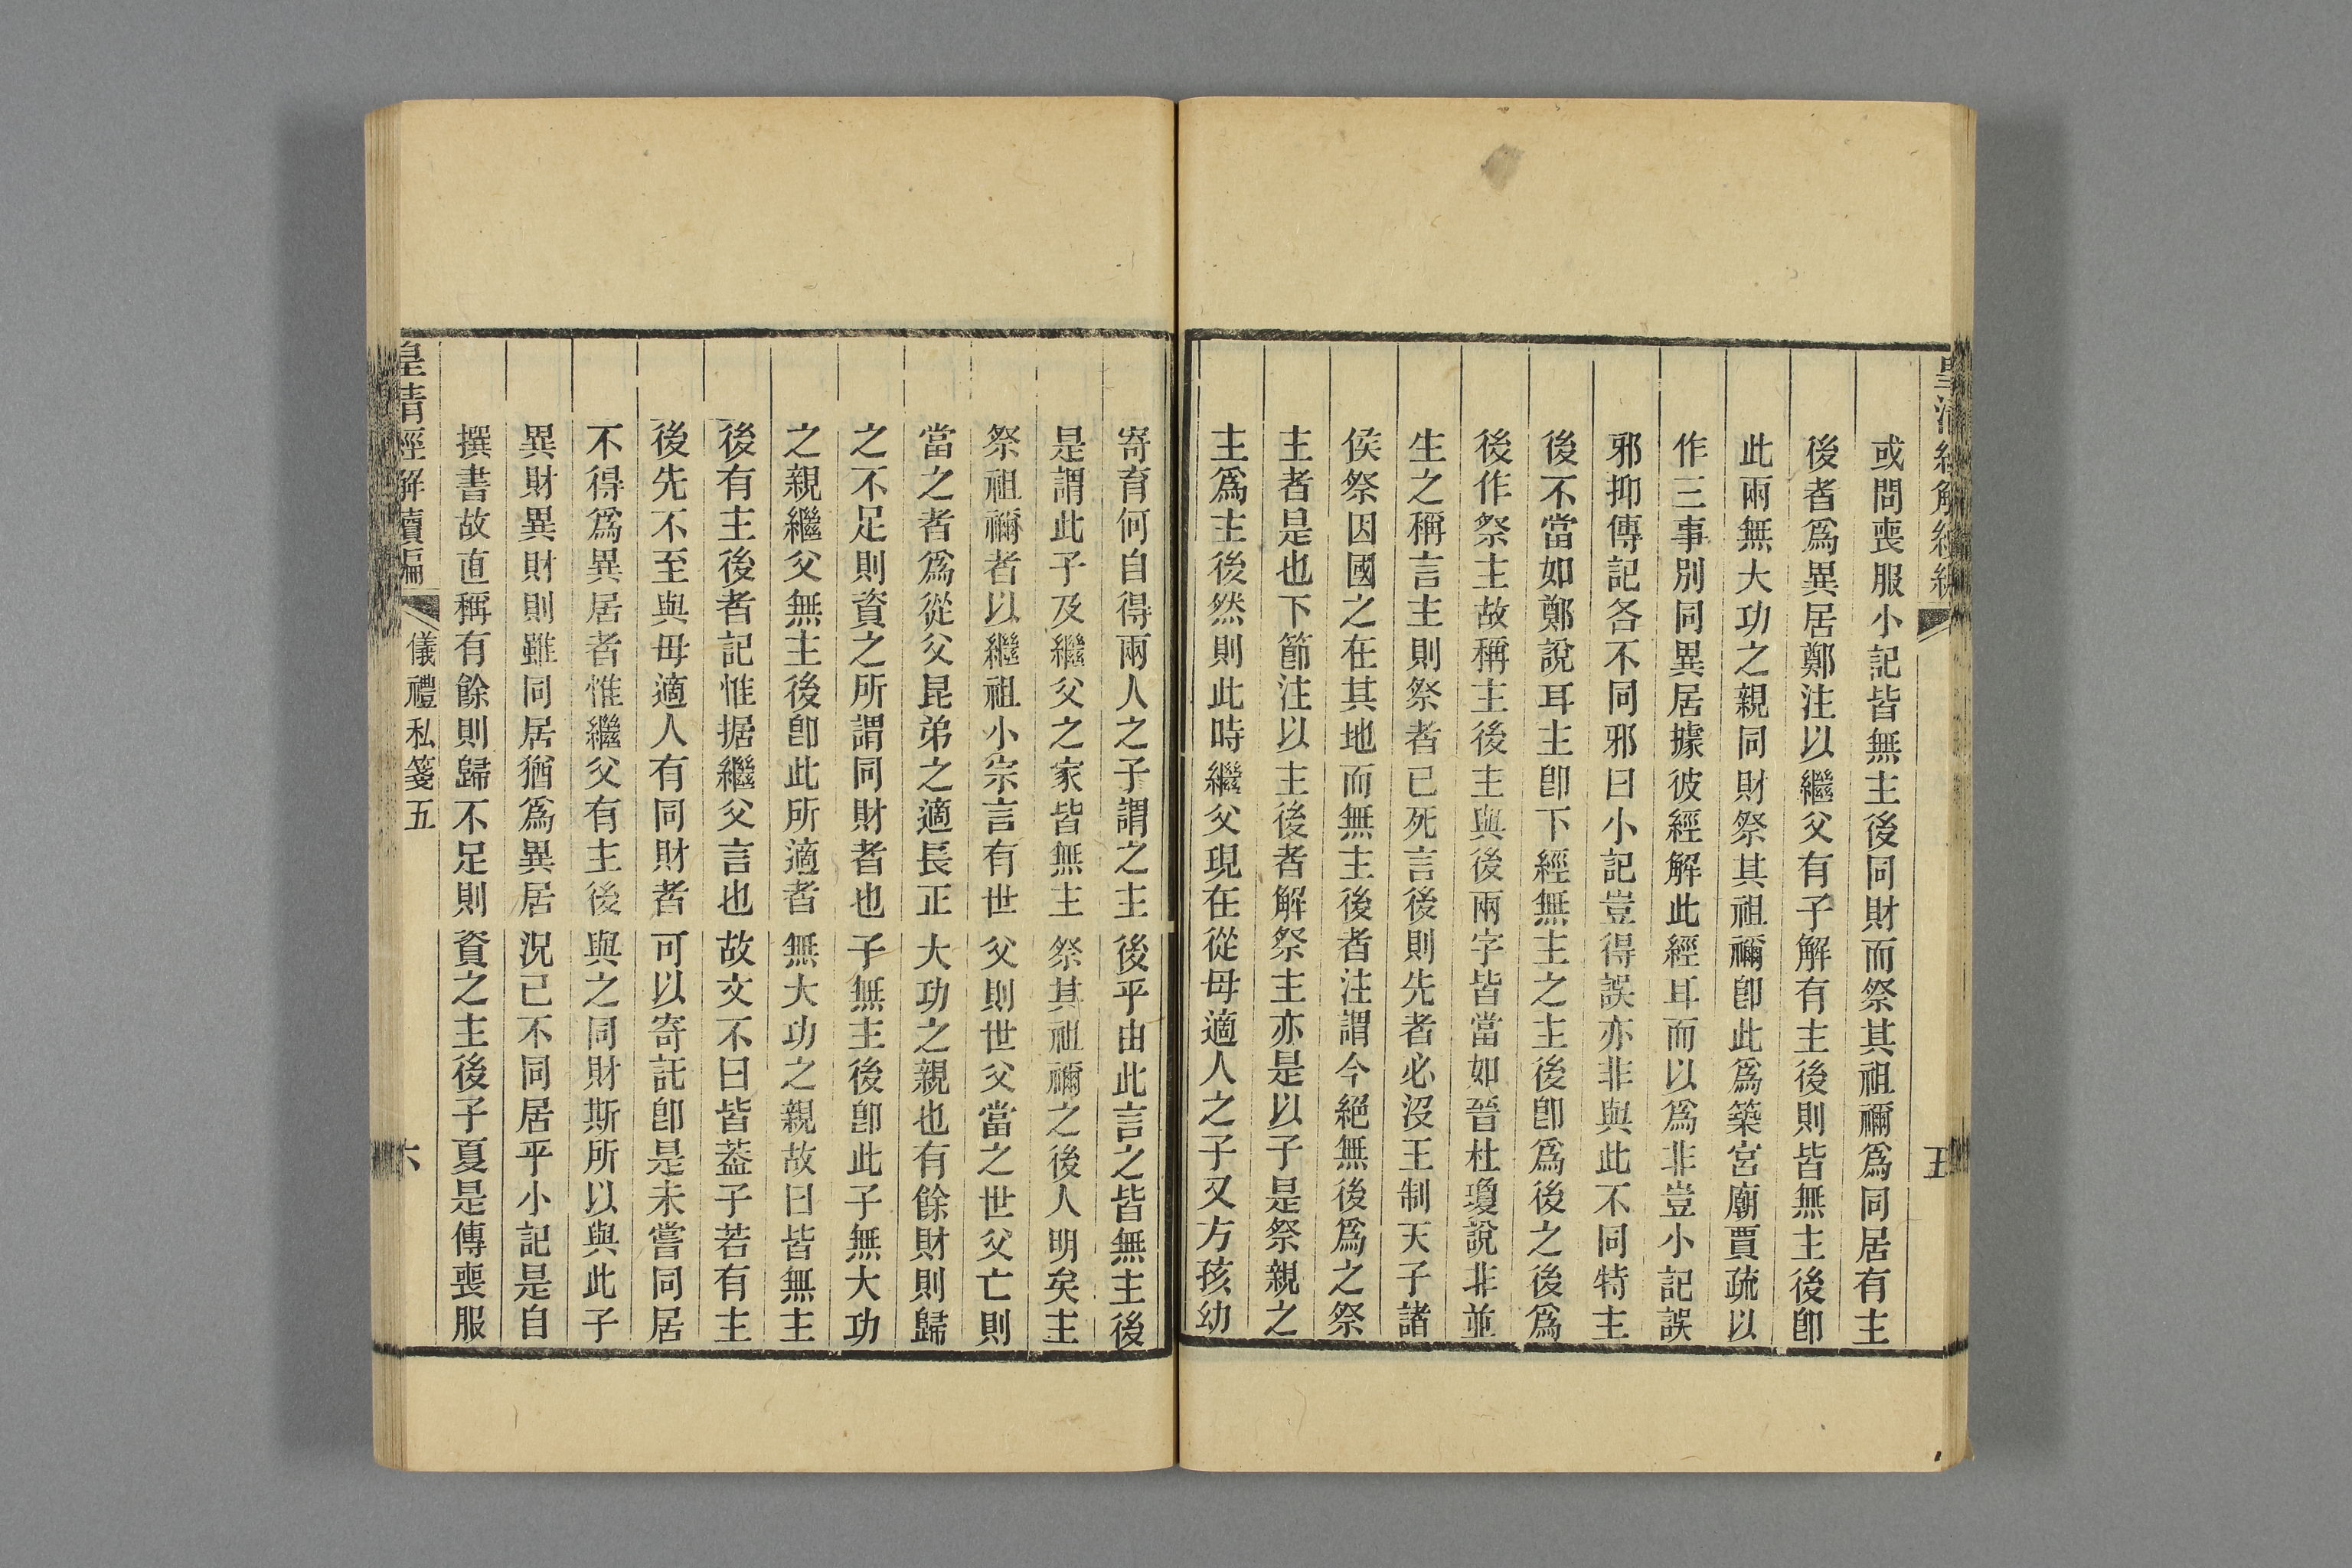 或問喪服小記皆無主後同財而祭其祖禰爲同居有主
後者爲異居鄭注以繼父有子解有主後則皆無主後卽
此兩無大功之親同財祭其祖禰卽此爲築宮廟賈疏以
作三事別同異居據彼經解此經耳而以爲非豈小記誤
邪抑傳記各不同邪曰小記豈得誤亦非與此不同特主
後不當如鄭說耳主卽下經無主之主後卽爲後之後爲
後作祭主故稱主後主與後兩字皆當如晉杜瓊說非並
生之稱言主則祭者已死言後則先者必沒王制天子諸
侯祭因國之在其地而無主後者注謂今絕無後爲之祭
主者是也下節注以主後者解祭主亦是以子是祭親之
主爲主後然則此時繼父現在從母適人之子又方孩幼
五
寄育何自得兩人之子謂之主後乎由此言之皆無主後
是謂此子及繼父之家皆無主祭其祖禰之後人明矣主
祭祖禰者以繼祖小宗言有世父則世父當之世父亡則
當之者爲從父昆弟之適長正大功之親也有餘財則歸
之不足則資之所謂同財者也子無主後卽此子無大功
之親繼父無主後卽此所適者無大功之親故曰皆無主
後有主後者記惟据繼父言也故文不曰皆葢子若有主
後先不至與母適人有同財者可以寄託卽是未嘗同居
不得爲異居者惟繼父有主後與之同財斯所以與此子
異財異財則雖同居猶爲異居況已不同居乎小記是自
撰書故直稱有餘則歸不足則資之主後子夏是傳喪服
皇清經解續編
儀禮私箋五
六